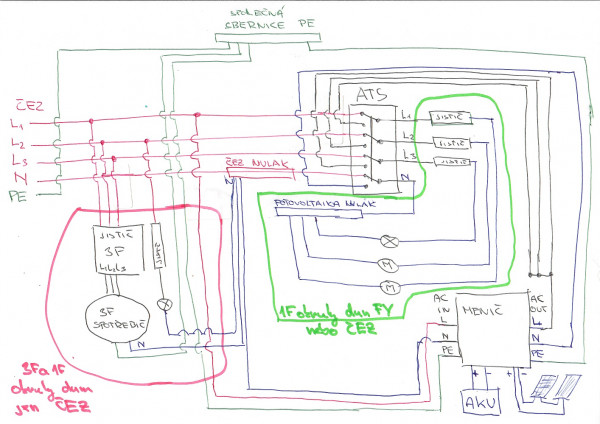 SPOLEČNÁ
SBERNICE PE
ČEZ
L1
L2
L3
N
PE
ATS
L1
L2
L3
N
JISTIČ
JISTIČ
JISTIČ
ČEZ NULAK
N
FOTOVOLTAIKA NULAK
M
M
1F obvody dum FV
nebo ČEZ
JISTIČ
3F
L1 L2 L3
JISTIČ
3F
SPOTŘEBIČ
N
3F a 1F
obvody dum
jen ČEZ
AC
IN
L
N
PE
MĚNIČ
AC
OUT
L
N
PE
+ -
+ -
AKU